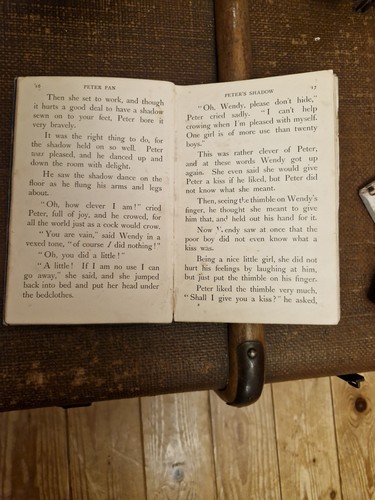 16 PETER PAN
Then she set to work, and though
it hurts a good deal to have a shadow
sewn on to your feet, Peter bore it
very bravely.
It was the right thing to do, for
the shadow held on so well. Peter
was pleased, and he danced up and
down the room with delight.
He saw the shadow dance on the
floor as he flung his arms and legs
about.
"Oh, how clever I am!" cried
Peter, full of joy, and he crowed, for
all the world just as a cock would crow.
"You are vain," said Wendy in a
vexed tone, "of course I did nothing!"
"Oh, you did a little!"
"A little! If I am no use I can
go away," she said, and she jumped
back into bed and put her head under
the bedclothes.
PETER'S SHADOW 17
"Oh, Wendy, please don't hide,"
Peter cried sadly. "I can't help
crowing when I'm pleased with myself.
One girl is of more use than twenty
boys."
This was rather clever of Peter,
and at these words Wendy got up
again. She even said she would give
Peter a kiss if he liked, but Peter did
not know what she meant.
Then, seeing the thimble on Wendy's
finger, he thought she meant to give
him that, and held out his hand for it.
Now Wendy saw at once that the
poor boy did not even know what a
kiss was.
Being a nice little girl, she did not
hurt his feelings by laughing at him,
but just put the thimble on his finger.
Peter liked the thimble very much.
"Shall I give you a kiss?" he asked,